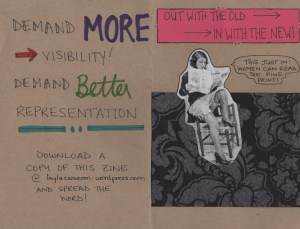 DEMAND MORE
→ VISIBILITY!
DEMAND Better
REPRESENTATION
DOWNLOAD A
COPY OF THIS ZINE
@
wordpress.com,
AND SPREAD THE
WORD!
OUT WITH THE OLD →
→ IN WITH THE NEW!
THIS JUST IN:
WOMEN CAN READ
THE FINE
PRINT!